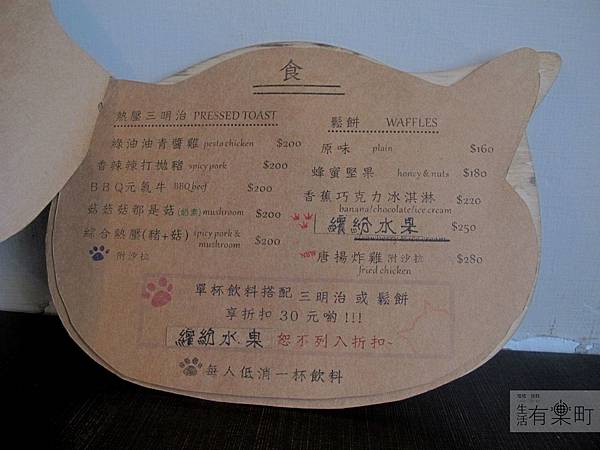 食
熱壓三明治 PRESSED TOAST
綠油油青醬雞 pesto chicken $200
香辣辣打拋豬 spicy pork $200
BBQ元氣牛 BBQ beef $200
菇菇菇都是菇(奶素) mushroom $200
綜合熱壓(豬+菇) spicy pork & mushroom $200
附沙拉
鬆餅 WAFFLES
原味 plain $160
蜂蜜堅果 honey & nuts $180
香蕉巧克力冰淇淋 $220
banana/chocolate/ice cream
繽紛水果 $250
唐揚炸雞 附沙拉 $280
fried chicken
單杯飲料搭配 三明治 或 鬆餅
享折扣 30 元喲!!!
繽紛水果 恕不列入折扣~
每人低消一杯飲料
生活有樂町